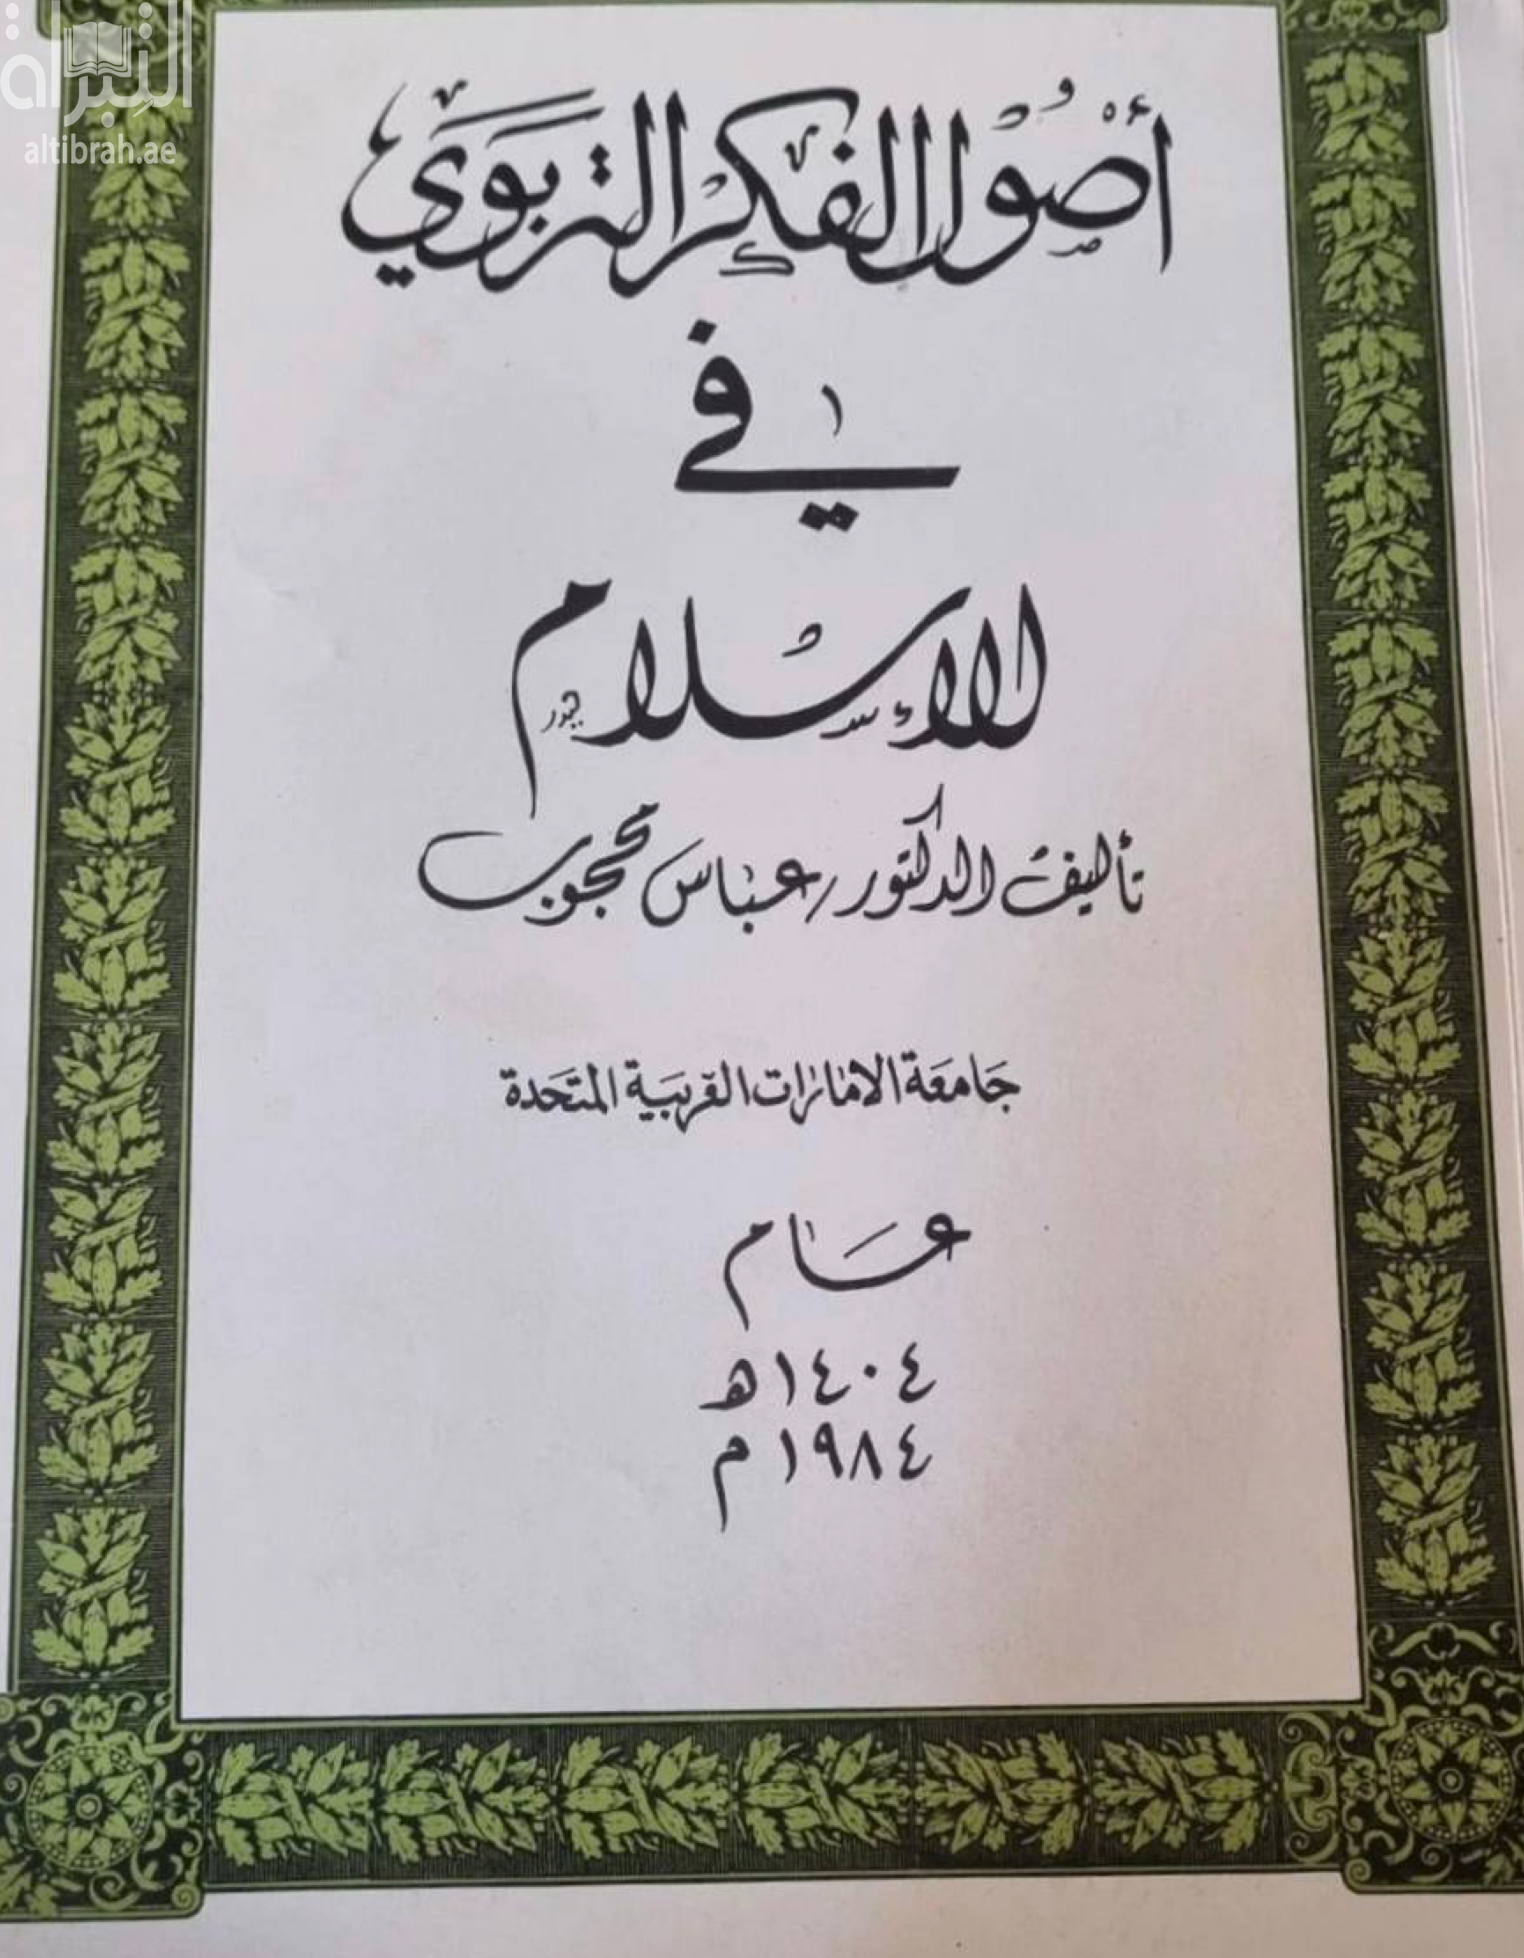 التبراة
altibrah.ae
أصُول الفكر التربَوي
في
الإسلام
تأليف الدكتور / عباس محجوب
جَامعَة الامارات العَربيَة المتحَدة
عَام
١٤٠٤ه
١٩٨٤م